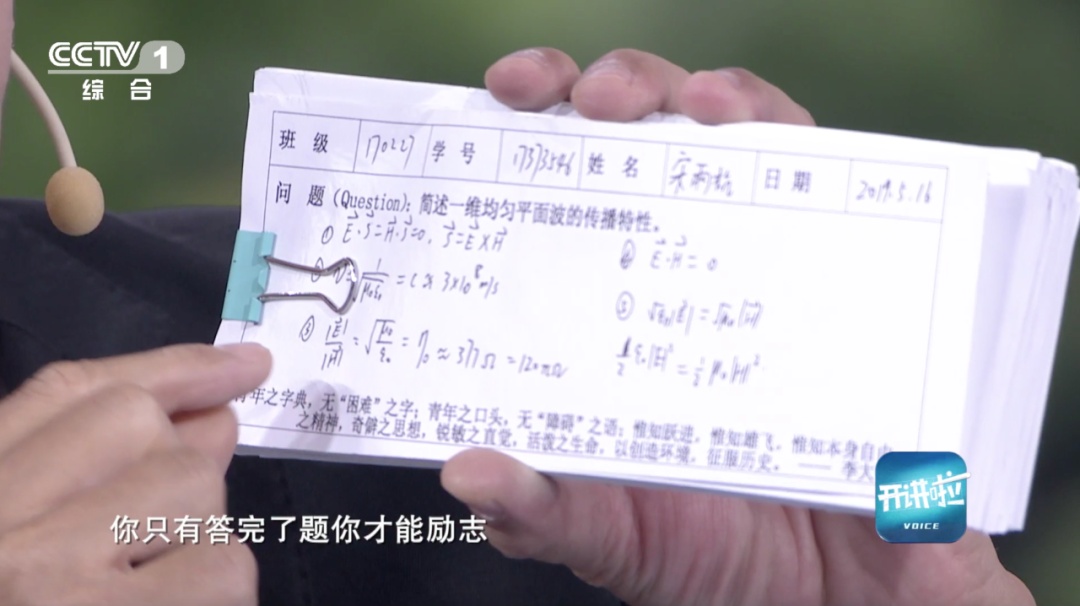 CCTV 1
综合
班级 170227 学号 17373546 姓名 日期 2019.5.16
问题（Question）：简述一维均匀平面波的传播特性。
① E·S=H·S=0，S=E×H
② E·H=0
=C≈3×10⁸m/s
⑤ √ε₀|E|=√μ₀|H|
|E|/|H|=√μ₀/ε₀=η₀≈377Ω=120πΩ
½ε₀|E|²=½μ₀|H|²
青年之字典，无“困难”之字；青年之口头，无“障碍”之语；惟知跃进，惟知雄飞，惟知本身自由
之精神，奇僻之思想，锐敏之直觉，活泼之生命，以创造环境，征服历史。——李大
开讲啦
VOICE
你只有答完了题你才能励志